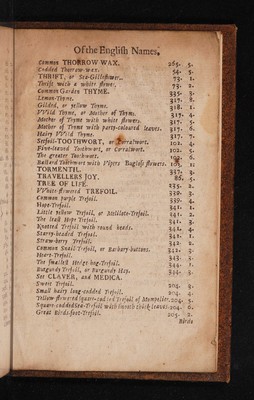 Of the English Names.
Common THORROW-WAX. 265. 5.
Codded Thorow-wax. 54. 5.
THRIFT, or Sea-Gilliflower. 73. 1.
Thrift with a white flower. 73. 2.
Common Garden THYME. 335. 3.
Lemon-Thyme. 317. 8.
Gilded, or yellow Thyme. 318. 1.
VVild Thyme, or Mother of Thyme. 317. 4.
Mother of Thyme with white flowers. 317. 5.
Mother of Thyme with party-coloured leaves. 317. 6.
Hairy VVild Thyme. 317. 7.
Setfoil-TOOTHWORT, or Corralwort. 102. 4.
Five-leaved Toothwort, or Corralwort. 102. 5.
The greater Toothwort. 102. 6.
Bastard Toothwort with Vipers Bugloss flowers. 11
TORMENTIL. 337. 3.
TRAVELLERS JOY. 86. 5.
TREE OF LIFE. 235. 2.
VVhite-flowered TREFOIL. 339. 3.
Common purple Trefoil. 339. 4.
Hope-Trefoil. 341. 1.
Little yellow Trefoil, or Mellilote-Trefoil. 341. 2.
The least Hope Trefoil. 341. 6.
Knotted Trefoil with round heads. 341. 4.
Starry-headed Trefoil. 342. 1.
Straw-berry Trefoil. 342. 2.
Common Snail-Trefoil, or Barbary-buttons. 342. 3.
Heart-Trefoil. 343. 3.
The smallest Hedge-hog-Trefoil. 344. 1.
Burgundy Trefoil, or Burgundy Hay. 334. 3.
See CLAVER, and MEDICA.
Sweet Trefoil. 204. 3.
Small hairy long-codded Trefoil. 204. 4.
Yellow-flowered Square-codded Trefoil of Montpelier. 204. 5.
Square-codded Sea-Trefoil with smooth thick leaves. 204. 6.
Great Birds-foot-Trefoil. 205. 2.
Birds